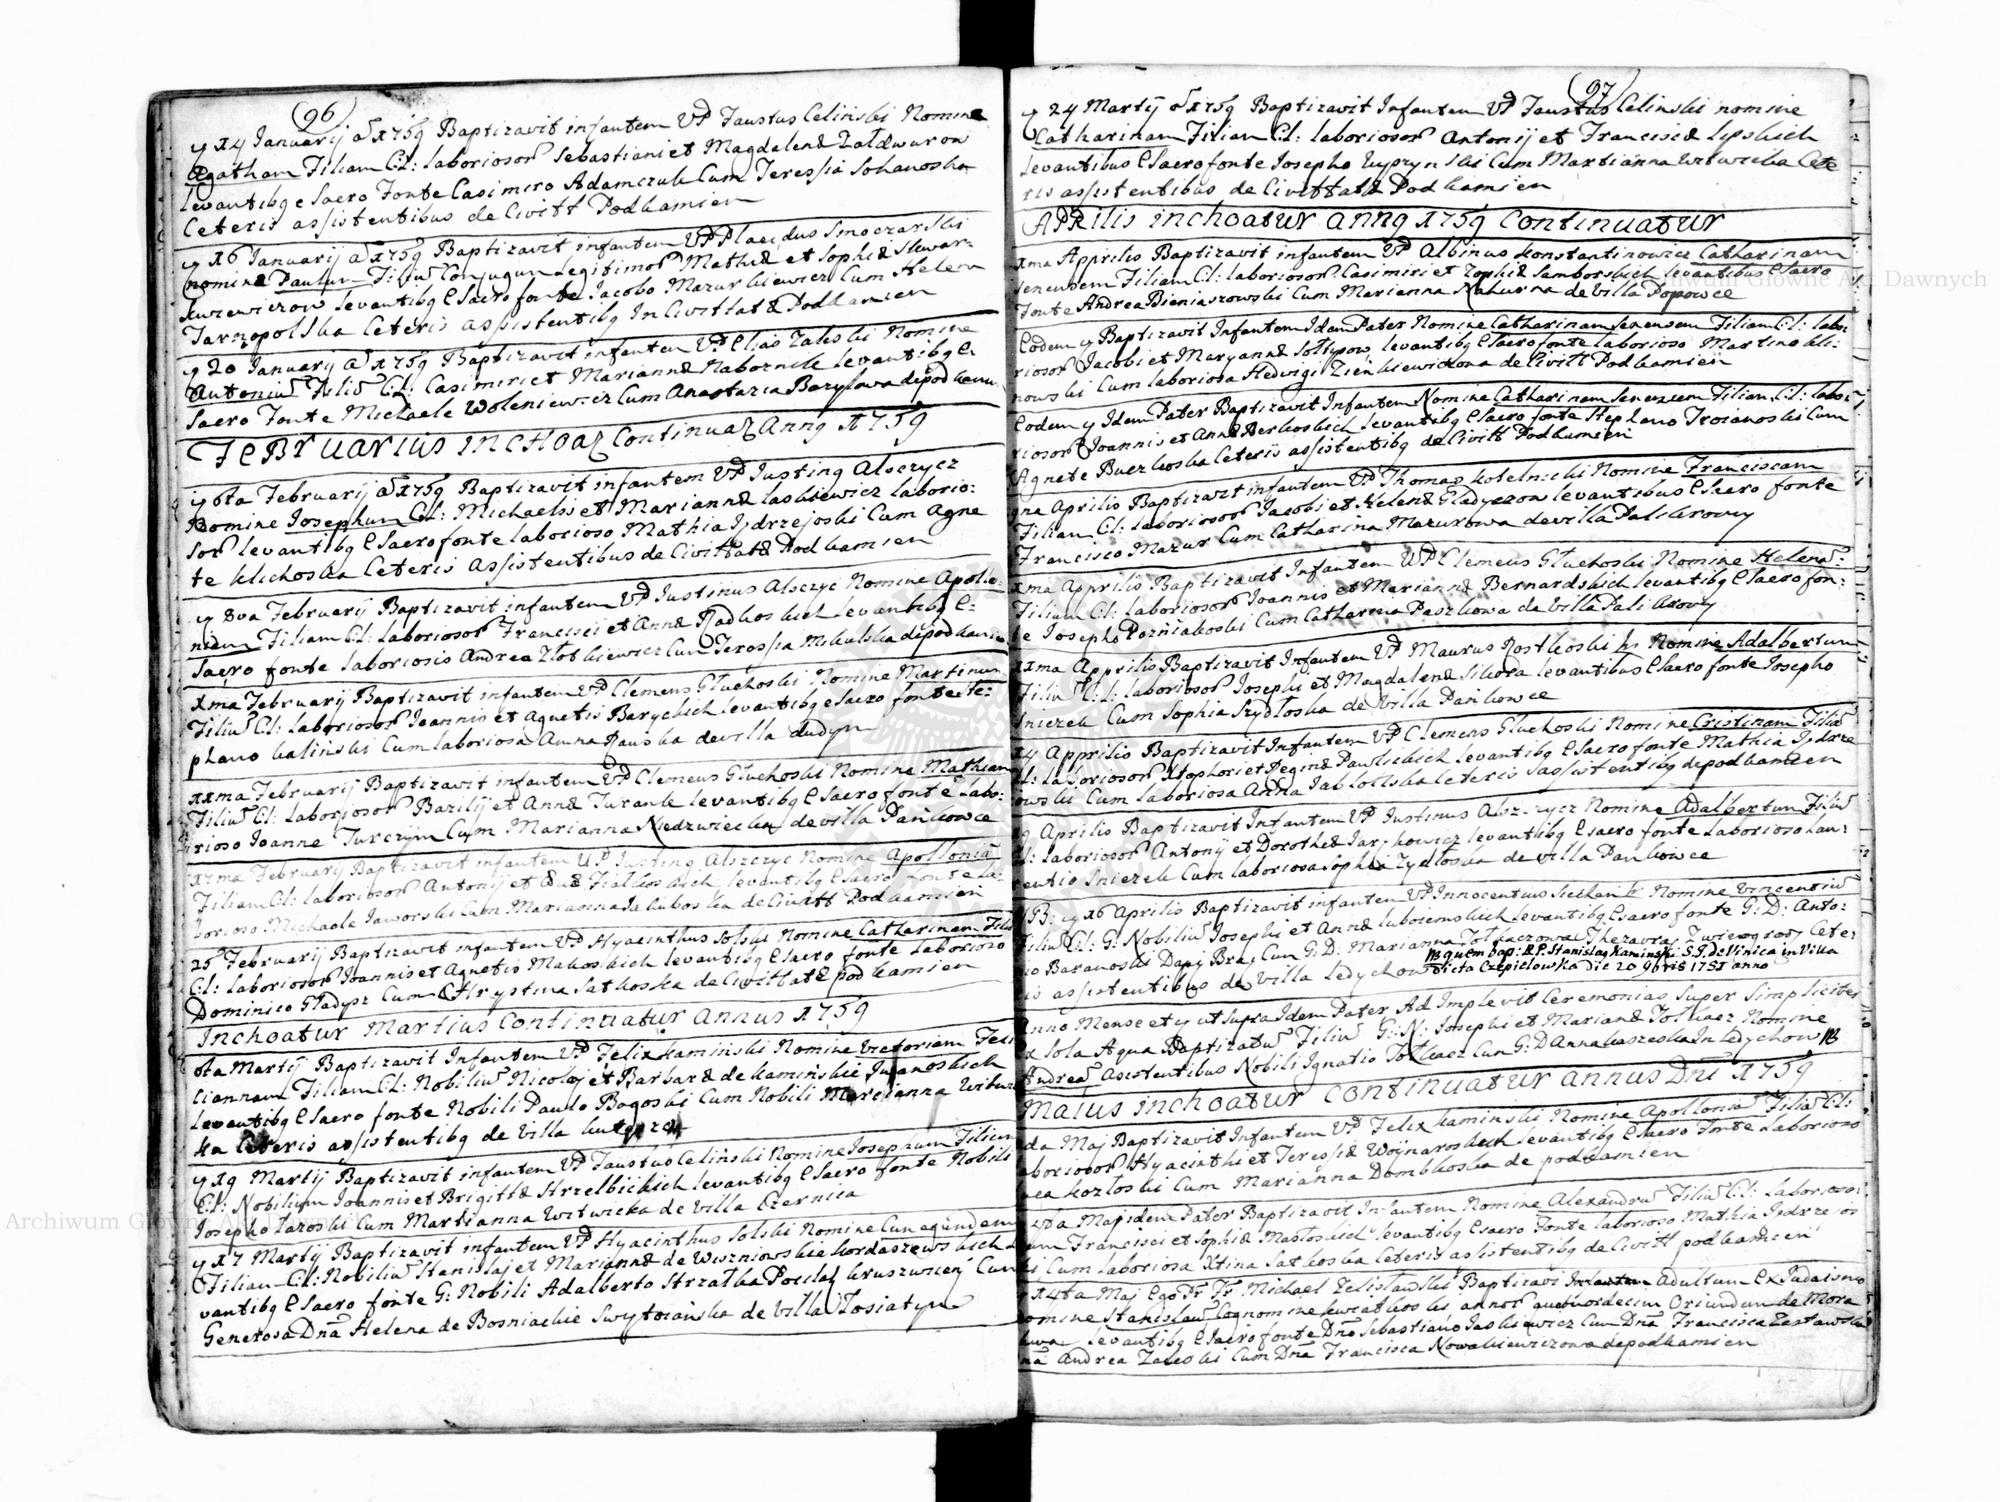 96
14 Januarij 1759 Baptizavit infantem VP Faustus Celinski Nomine
Agatham Filiam C:L: laboriosor Sebastiani et Magdalenæ
levantibg e Sacro Fonte Casimiro Adamczuk Cum Teressia
Ceteris assistentibus de Civitt Podkamien
16 Januarij 1759 Baptizavit infantem VP Placidus Smoczarski
nomine Paulum Filiū Conjugum Legitimor Mathiæ et Sophiæ
levantibg e Sacro fonte Jacobo Mazurkiewicz Cum Helena
Tarnopolska Ceteris assistentibg in Civittatæ Podkamien
20 Januarij 1759 Baptizavit infantem VP Elias Zaleski Nomine
Antoniū Filiū C:L: Casimiri et Mariannæ Nabornik levantibg e
Sacro Fonte Michaele Woleniewicz Cum Anastazia Barylowa de
FEBRUARIUS INCHOAT Continuat Anng 1759
6ta Februarij 1759 Baptizavit infantem VP Justing Alsczycz
Nomine Josephum C:L: Michaelis et Mariannæ Laskiewicz laborio:
sor levantibg e Sacro fonte laborioso Mathia Jędrzejoski Cum Agne
te Klichoska Ceteris Assistentibus de Civittatæ Podkamien
8va Februarij Baptizavit infantem VP Justinus Alsczyc Nomine Apollo:
niam Filiam C:L: Laboriosor Francisci et Annæ Radkoskich levantibg e
Sacro fonte laboriosis Andrea Złotkiewicz Cum Teressia Mikulska de podkamie
xma Februarij Baptizavit infantem VP Clemens Głuchoski Nomine Martinum
Filiū C:L: laboriosor Joannis et Agnetis Baryckich levantibg e Sacro fonte Ste:
phano Kalinski Cum laboriosa Anna Rauska de villa dudyn
Februarij Baptizavit infantem VP Clemens Głuchoski Nomine Mathiam
Filiū C:L: Laboriosor Bazilij et Annæ Turank levantibg e Sacro fonte Labo:
rioso Joanne Turczyn Cum Marianna Niedzwiecka de villa Pankowce
Februarij Baptizavit infantem VP Justing Alszczyc Nomine Apollonia
Filiam C:L: laboriosor Antonij et Fialkoskich levantibg e Sacro fonte La:
borioso Michaele Jaworski Cum Marianna Jakuboska de Civitt Podkamien
25 Februarij Baptizavit infantem VP Hyacinthus Solski Nomine Catharinam Filia
C:L: laboriosor Joannis et Agnetis Makoskich levantibg e Sacro fonte Laborioso
Dominico Gładysz Cum Chrystina Satkoska de Civittatæ podkamien
Inchoatur Martius Continuatur Annus 1759
6ta Martij Baptizavit Infantem VP Felix Kaminski Nomine Victoriam
ciannam Filiam C:L: Nobiliū Nicolaj et Barbaræ de Kaminskie Iwanoskich
levantibg e Sacro fonte Nobili Paulo Bogoski Cum Nobili Marcianna
ka Ceteris assistentibg de villa
19 Martij Baptizavit infantem VP Faustus Celinski Nomine Josephum Filium
C:L: Nobilium Joannis et Brigittæ Strzelbickich levantibg e Sacro fonte Nobili
Josepho Lazoski Cum Martianna Witwicka de villa Czernica
17 Martij Baptizavit infantem VP Hyacinthus Solski Nomine Cunegundem
Filiam C:L: Nobiliū Stanislaj et Mariannæ de Wiszniowskie Kordaszewskich
vantibg e Sacro fonte G: Nobili Adalberto Strzałka Kruszwicen Cum
Generosa Dna Helena de Bosniackie Swytocianska de villa Zosiatyn
97
24 Martij 1759 Baptizavit Infantem VP Faustus Celinski nomine
Catharinam Filiam C:L: laboriosor Antonij et Franciscæ Lipskich
levantibus e Sacro fonte Josepho Kupzynski Cum Martianna Witwicka Cete
ris assistentibus de Civittatæ Podkamien
APRILIS inchoatur Anng 1759 Continuatur
xma Apprilis Baptizavit infantem VP Albinus Konstantinowicz Catharinam
Senensem Filiam C:L: laboriosor Casimiri et Zophiæ Samborskich levantibus e Sacro
Fonte Andrea Bieniaszowski Cum Marianna de Villa Popowce
Eodem Baptizavit Infantem Idem Pater Nomine Catharinam Senensem Filiam C:L: labo
riosor Jacobi et Maryannæ Sołtysow levantibg e Sacro fonte laborioso Martino Kli:
nowski Cum laboriosa Hedwigi Zienkiewickona de Civitt Podkamien
Eodem Idem Pater Baptizavit Infantem Nomine Catharinam Senensem Filiam C:L: labo
riosor Joannis et Annæ Berkoskich levantibg e Sacro fonte Stephano Troianoski Cum
Agnete Buczkoska Ceteris assistentibg de Civitt Podkamien
Aprilis Baptizavit infantem VP Thomas Kotelnicki Nomine Franciscam
Filiam C:L: laboriosor Jacobi et Helenæ Gładyszow levantibus e Sacro fonte
Francisco Mazur Cum Catharina Mazurowa de villa Palikrowy
xma Aprilis Baptizavit Infantem VP Clemens Głuchoski Nomine Helena
Filiam C:L: Laboriosor Joannis et Mariannæ Bernardskich levantibg e Sacro fon:
te Josepho Pozniakoski Cum Catharina Paszkowa de Villa Palikrowy
Apprilis Baptizavit Infantem VP Maurus Rostkoski Nomine Adalbertum
Filiū C:L: laboriosor Josephi et Magdalenæ Sikora levantibus e Sacro fonte Josepho
Sniezek Cum Sophia Szydłoska de Villa Panikowce
14 Apprilis Baptizavit Infantem VP Clemens Głuchoski Nomine Cristinam Filiā
C:L: laboriosor Xtophori et Reginæ Pawlickich levantibg e Sacro fonte Mathia Jędrze
iowski Cum laboriosa Anna Jabłońska Ceteris assistentibg de podkamien
Aprilis Baptizavit Infantem VP Justinus Alszczycz Nomine Adalbertum Filiū
C:L: laboriosor Antonij et Dorotheæ levantibg e Sacro fonte Laborioso Lau:
rentio Sniezek Cum laboriosa Sophia Szydłoska de villa Pankowce
NB: 16 Aprilis Baptizavit infantem VP Innocentius Nomine Vincentiū
Filiū C:L: G: Nobiliū Josephi et Annæ Lubiemskich levantibg e Sacro fonte G: D: Anto:
nio Baranoski Cum G: D: Marianna Tołkaczowa Cete
ris assistentibus de Villa Ledychow
NB quem bap: R.P. Stanislag Kaminski S.J. de Vinica in Villa
dicta Czepielowka die 20 9bris 1751 anno
Anno Mense et ut Supra Idem Pater Ad Implevit Ceremonias Super Simpliciter
Ex Sola Aqua Baptizatū Filiū G: N: Josephi et Mariannæ Tołkacz Nomine
Andreā Asistentibus Nobili Ignatio Tołkacz Cum G: D Anna Kaszeska In Ledychow NB
Maius inchoatur Continuatur Annus Dni 1759
da Maj Baptizavit Infantem VP Felix Kaminski Nomine Apolloniā Filiā C:L:
laboriosor Hyacinthi et Teressiæ Woynaroskich levantibg e Sacro Fonte Laborioso
Kozłoski Cum Marianna Dombkoska de podkamien
Maj idem Pater Baptizavit Infantem Nomine Alexandrū Filiū C:L: Laborioso:
rum Francisci et Sophiæ Masłoskich levantibg e Sacro Fonte laborioso Mathia Jędrzeios
ki Cum laboriosa Xtina Satkoska Ceteris assistentibg de Civitt podkamien
14ta Maj Ego Fr Michael Zelislawski Baptizavi Infantem Adultum Ex Judaismo
Nomine Stanislaū Cognomine Kwiatkoski annor quatuordecim Oriundum de Mora
levantibg e Sacro fonte Dno Sebastiano Jaskiewicz Cum Dna Francisca Zasławska
Andrea Zaleski Cum Dna Francisca Nowakiewiczowa de podkamien
Archiwum Główne Akt Dawnych
Archiwum Główne Akt Dawnych